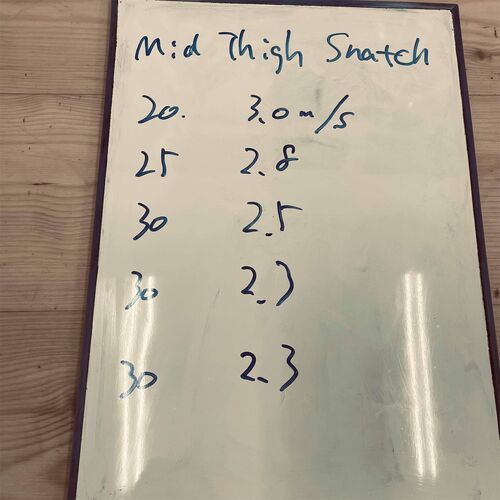 Mid Thigh Snatch
20. 3.0 m/s
25 2.8
30 2.5
30 2.3
30 2.3